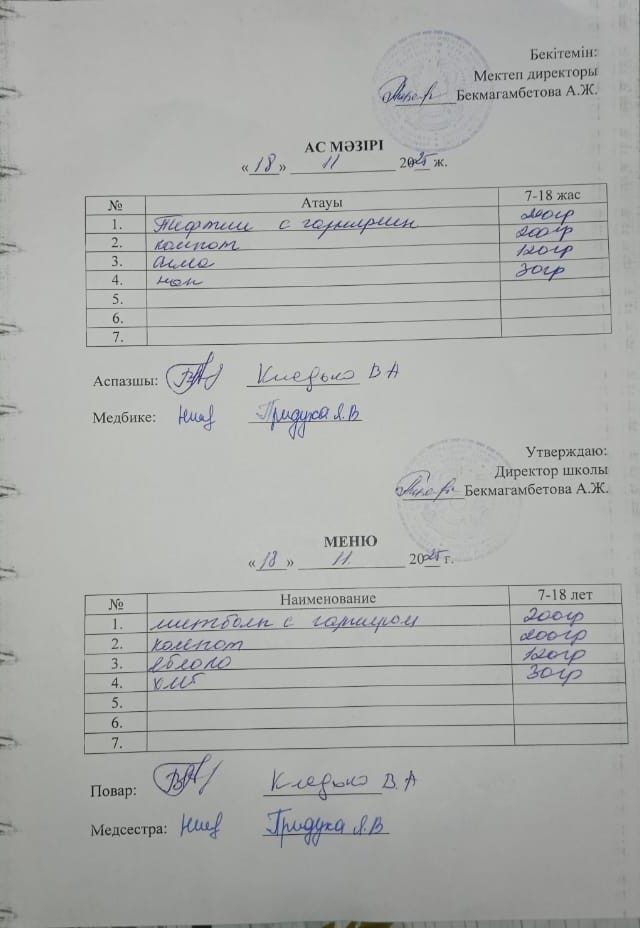 Бекітемін:
Мектеп директоры
Бекмагамбетова А.Ж.
АС МӘЗІРІ
«18» 11 2025 ж.
№ Атауы 7-18 жас
1. Тефтели с гарниром 200гр
2. компот 200гр
3. алма 120гр
4. нан 30гр
5.
6.
7.
Аспазшы: Кледько В А
Медбике: Придуха Я.В
Утверждаю:
Директор школы
Бекмагамбетова А.Ж.
МЕНЮ
«18» 11. 2025 г.
№ Наименование 7-18 лет
1. митболы с гарниром 200гр
2. компот 200гр
3. яблоко 120гр
4. хлеб 30гр
5.
6.
7.
Повар: Кледько В. А
Медсестра: Придуха Я.В